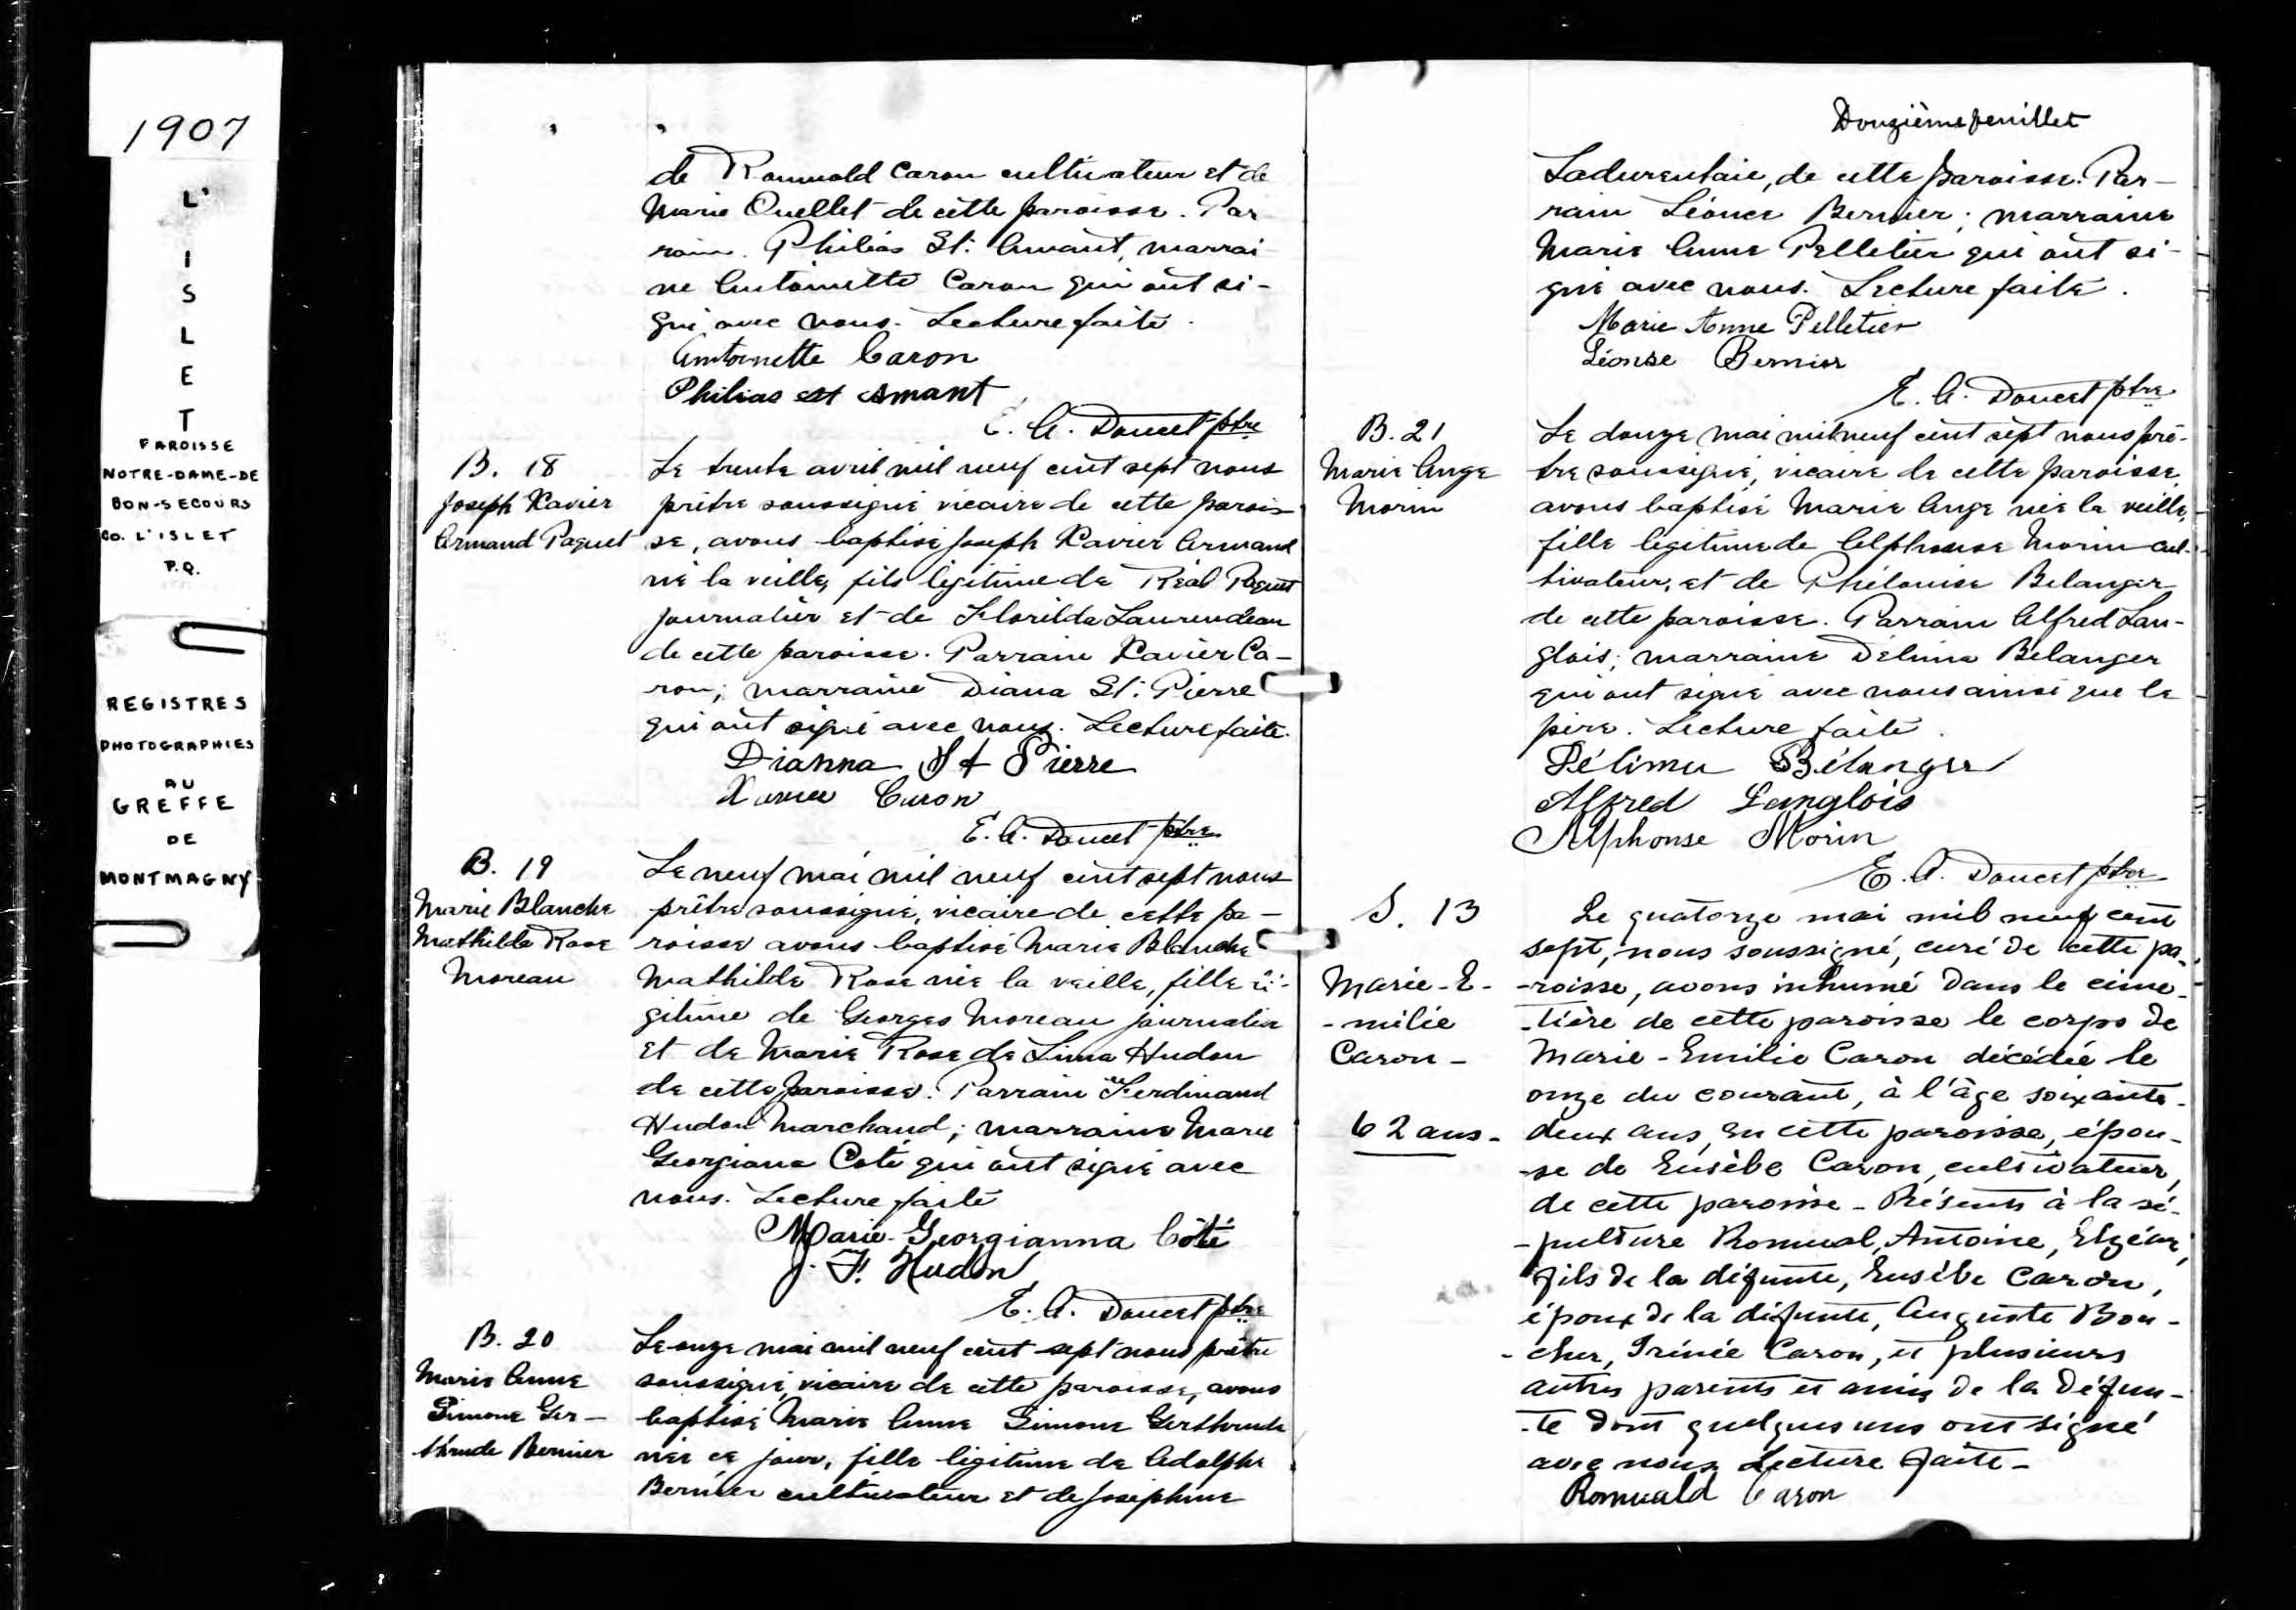 1907
L'
I
S
L
E
T
PAROISSE
NOTRE-DAME-DE
BON-SECOURS
CO. L'ISLET
P.Q.
REGISTRES
PHOTOGRAPHIES
AU
GREFFE
DE
MONTMAGNY
de Romuald Caron cultivateur et de
Marie Ouellet de cette paroisse. Par
rain. Philias St. Amant, marrai
ne Antoinette Caron qui ont si-
gné avec nous. Lecture faite.
Antoinette Caron
Philias st Amant
E. A. Doucet ptre
B. 18
Joseph Xavier
Armand Paquet
Le trente avril mil neuf cent sept nous
prêtre soussigné vicaire de cette parois-
se, avons baptisé Joseph Xavier Armand
né la veille, fils légitime de Réal Paquet
journalier et de Florilda Laurendeau
de cette paroisse. Parrain Xavier Ca-
ron; marraine Diana St. Pierre
qui ont signé avec nous. Lecture faite.
Dianna St Pierre
Xavier Caron
E. A. Doucet ptre
B. 19
Marie Blanche
Mathilde Rose
Moreau
Le neuf mai mil neuf cent sept nous
prêtre soussigné, vicaire de cette pa-
roisse avons baptisé Marie Blanche
Mathilde Rose née la veille, fille lé-
gitime de Georges Moreau journalier
et de Marie Rose de Lima Hudon
de cette paroisse. Parrain Ferdinand
Hudon Marchand; marraine Marie
Georgiana Coté qui ont signé avec
nous. Lecture faite
Marie-Georgianna Côté
J. F. Hudon
E. A. Doucet ptre
B. 20
Marie Anne
Simone Ger-
trude Bernier
Le onze mai mil neuf cent sept nous prêtre
soussigné, vicaire de cette paroisse, avons
baptisé Marie Anne Simone Gerthrude
née ce jour, fille légitime de Adolphe
Bernier cultivateur et de Joséphine
Douzième feuillet
Ladurentaie, de cette paroisse. Par-
rain Léonce Bernier; marraine
Marie Anne Pelletier qui ont si-
gné avec nous. Lecture faite.
Marie Anne Pelletier
Léonse Bernier
E. A. Doucet ptre
B. 21
Marie Ange
Morin
Le douze mai mil neuf cent sept nous prê-
tre soussigné, vicaire de cette paroisse,
avons baptisé Marie Ange née la veille,
fille légitime de Alphonse Morin cul-
tivateur, et de Philonise Belanger
de cette paroisse. Parrain Alfred Lan-
glois; marraine Délima Bélanger
qui ont signé avec nous ainsi que le
père. Lecture faite.
Délima Bélanger
Alfred Langlois
Alphonse Morin
E. A. Doucet ptre
S. 13
Marie-E-
-milie
Caron-
62 ans-
Le quatorze mai mil neuf cent
sept, nous soussigné, curé de cette pa-
-roisse, avons inhumé dans le cime-
-tière de cette paroisse le corps de
Marie-Emilie Caron décédée le
onze du courant, à l'âge soixante-
deux ans, en cette paroisse, épou-
-se de Eusèbe Caron, cultivateur,
de cette paroisse - Présents à la sé-
-pulture Romual, Antoine, Elzéar,
fils de la défunte, Eusèbe Caron,
époux de la défunte, Auguste Bou-
-cher, Irénée Caron, et plusieurs
autres parents et amis de la défun-
-te dont quelques uns ont signé
avec nous Lecture faite-
Romuald Caron